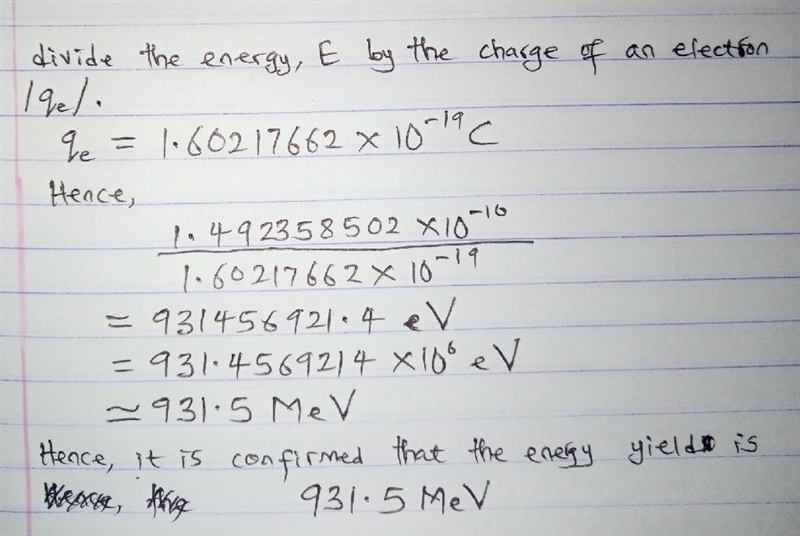 divide the energy, E by the charge of an electron
|qe|.
qe = 1.60217662 × 10^-19 C
Hence,
1.492358502 × 10^-10
1.60217662 × 10^-19
= 931456921.4 eV
= 931.4569214 × 10^6 eV
≃ 931.5 MeV
Hence, it is confirmed that the energy yield is
931.5 MeV